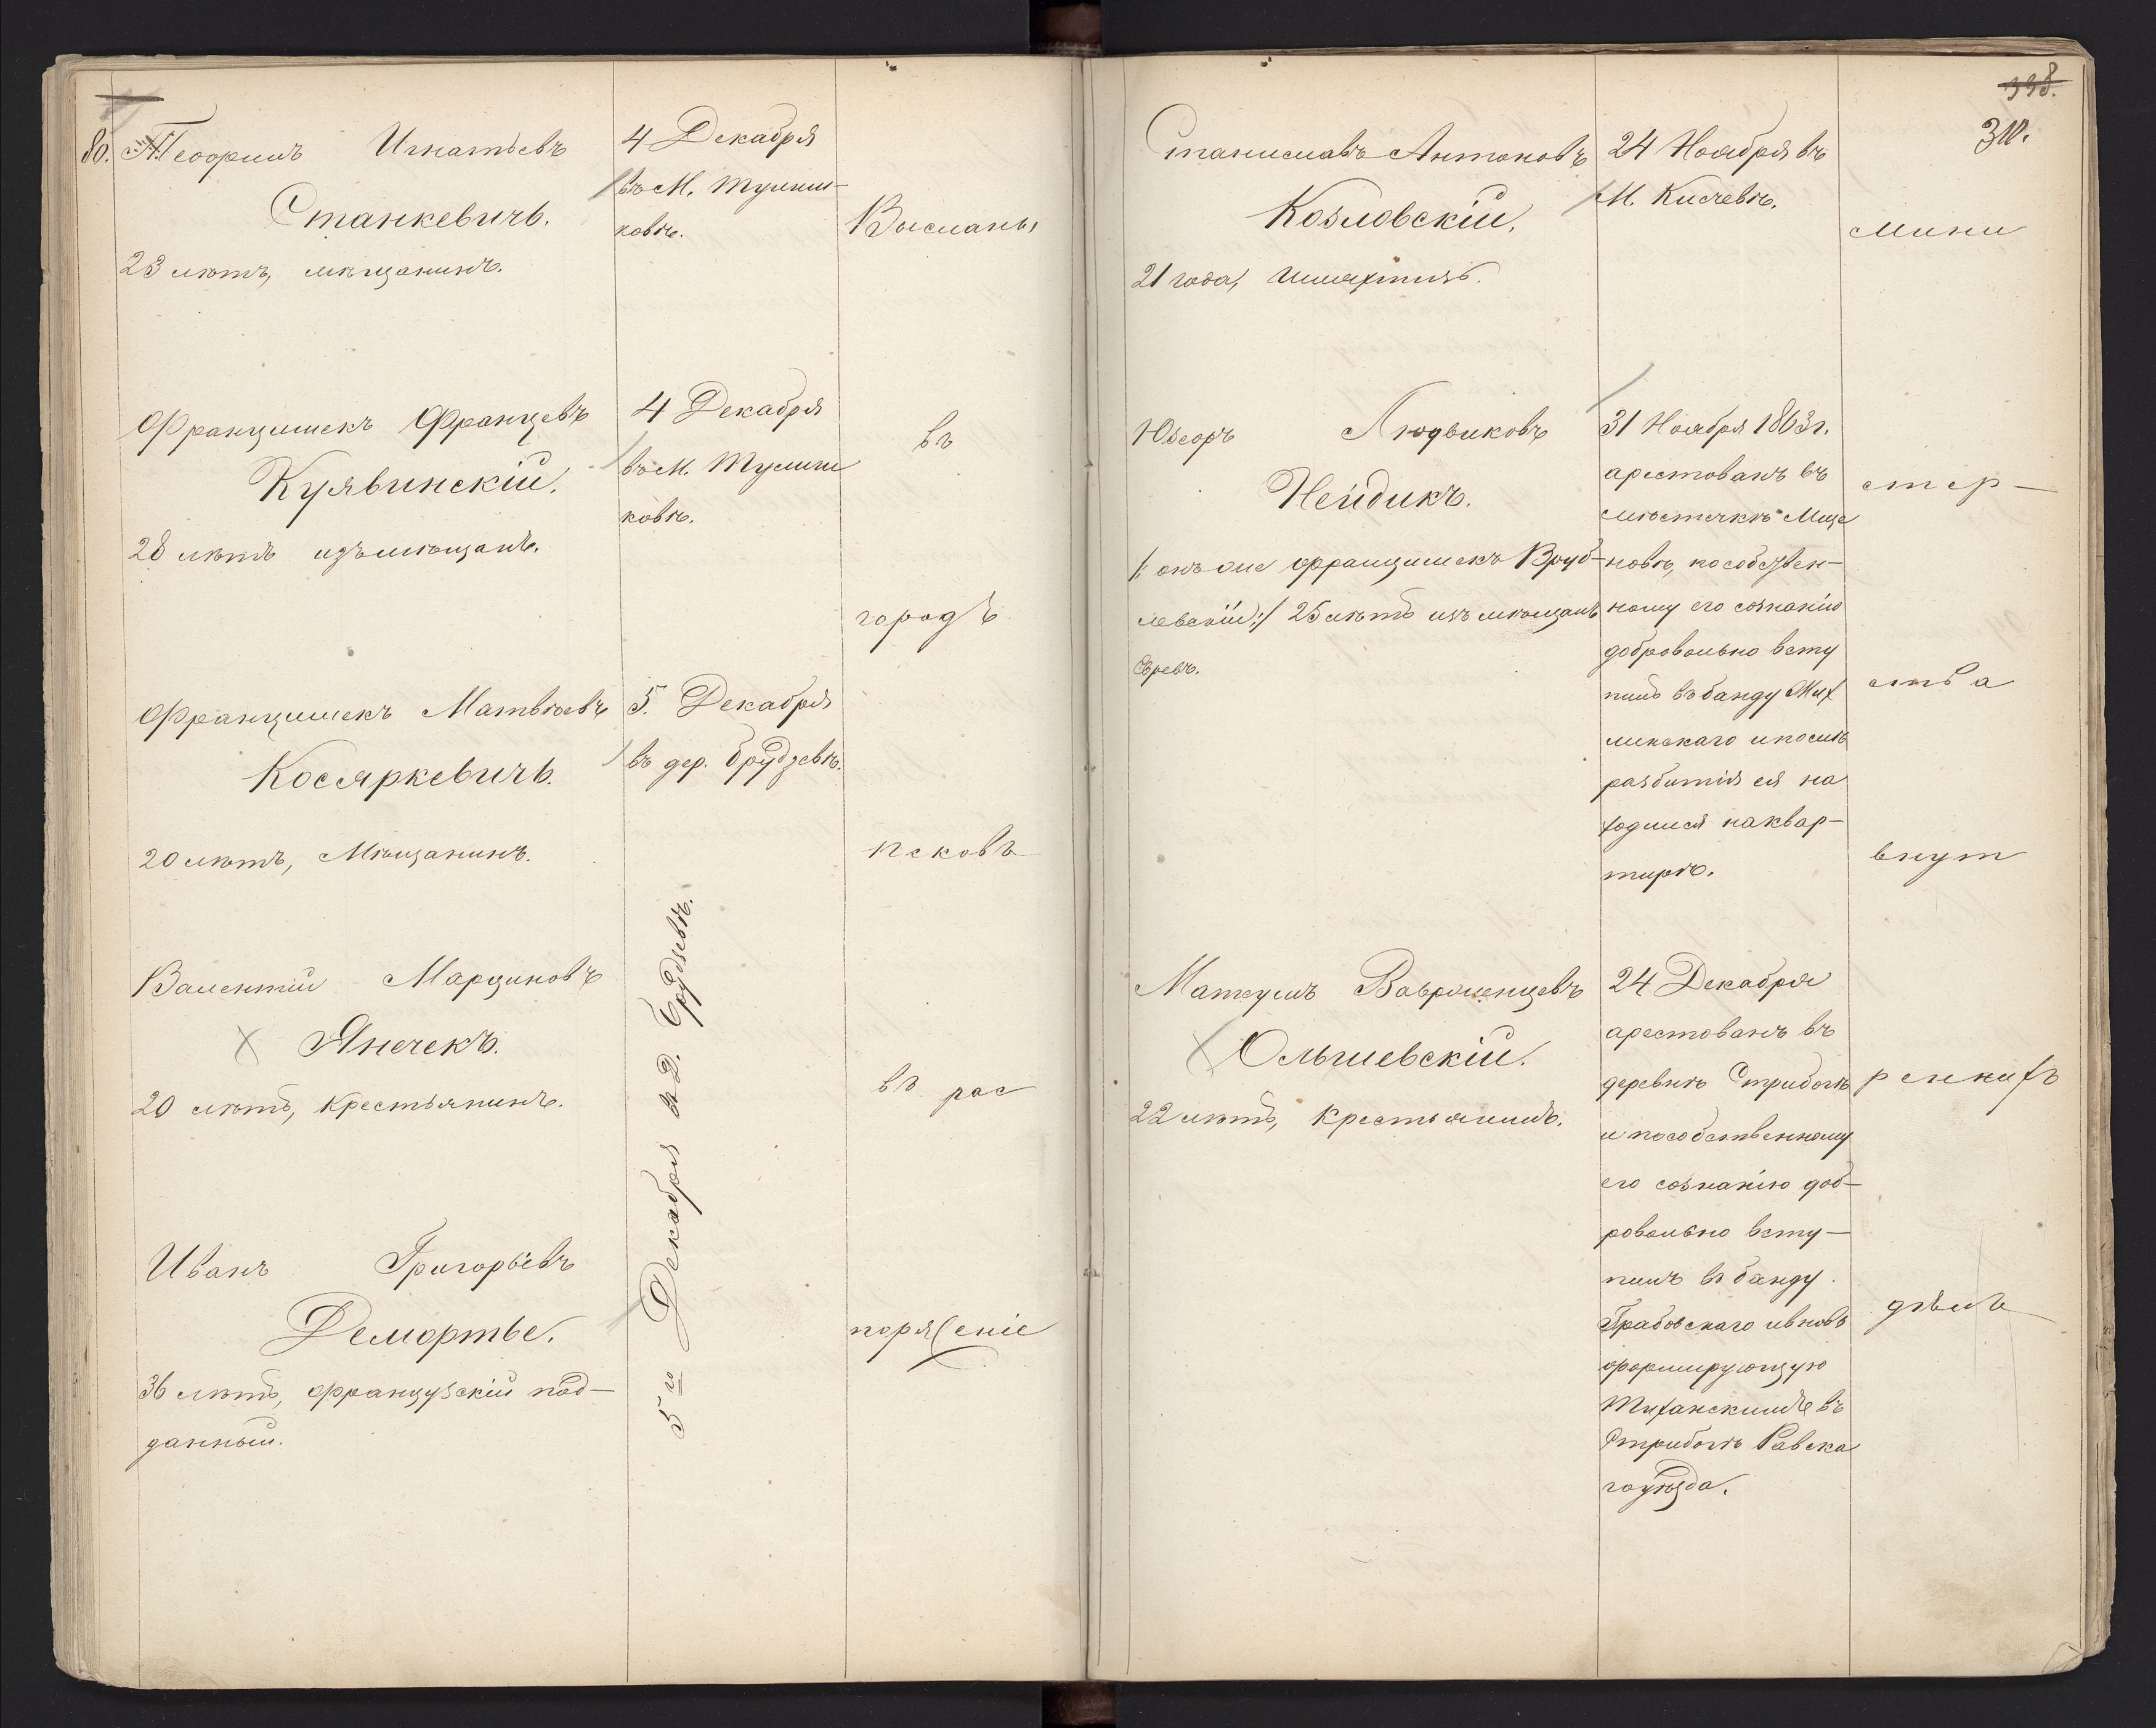 80. Теофиль Игнатьевъ
Станкевичъ.
23 лѣтъ, мѣщанинъ.
4 Декабря
въ М. Тулиш-
ковѣ.
Высланы
Францишекъ Францевъ
Куявинскій.
28 лѣтъ изъ мѣщанъ.
4 Декабря
въ М. Тулиш
ковѣ.
въ
городъ
Францишекъ Матвѣевъ
Косяркевичъ.
20 лѣтъ, Мѣщанинъ.
5. Декабря
въ дер. Брудзевѣ.
Псковъ
Валентій Марциновъ
Янечекъ.
20 лѣтъ, крестьянинъ.
5го Декабря въ д. Брудзевѣ.
въ рас
Иванъ Григорьевъ
Демортье.
36 лѣтъ, французскій под-
данный.
поряженіе
338.
310.
Станиславъ Антоновъ
Козловскій.
21 года, шляхтичъ.
24 Ноября въ
М. Кисчевѣ.
мини
Юзефъ Людвиковъ
Нейдикъ.
/: онъ же Францишекъ Вруб-
левскій :/ 25 лѣтъ изъ мѣщанъ
Евреевъ.
31 Ноября 1863 г.
арестованъ въ
мѣстечкѣ Мще
новѣ, по собствен-
ному его сознанію
добровольно всту
пилъ въ банду Мих
линскаго и послѣ
разбитія ея на
ходился на квар-
тирѣ.
стер-
ства
внут
Матеушъ Вавржинцевъ
Ольшевскій.
22 лѣтъ, крестьянинъ.
24 Декабря
арестованъ въ
деревнѣ Стрибогѣ
и по собственному
его сознанію доб-
ровольно всту-
пилъ въ банду
Грабовскаго и вновь
формирующую
Тиханскимъ въ
Стрибогѣ Равска
го уѣзда.
реннихъ
дѣлъ